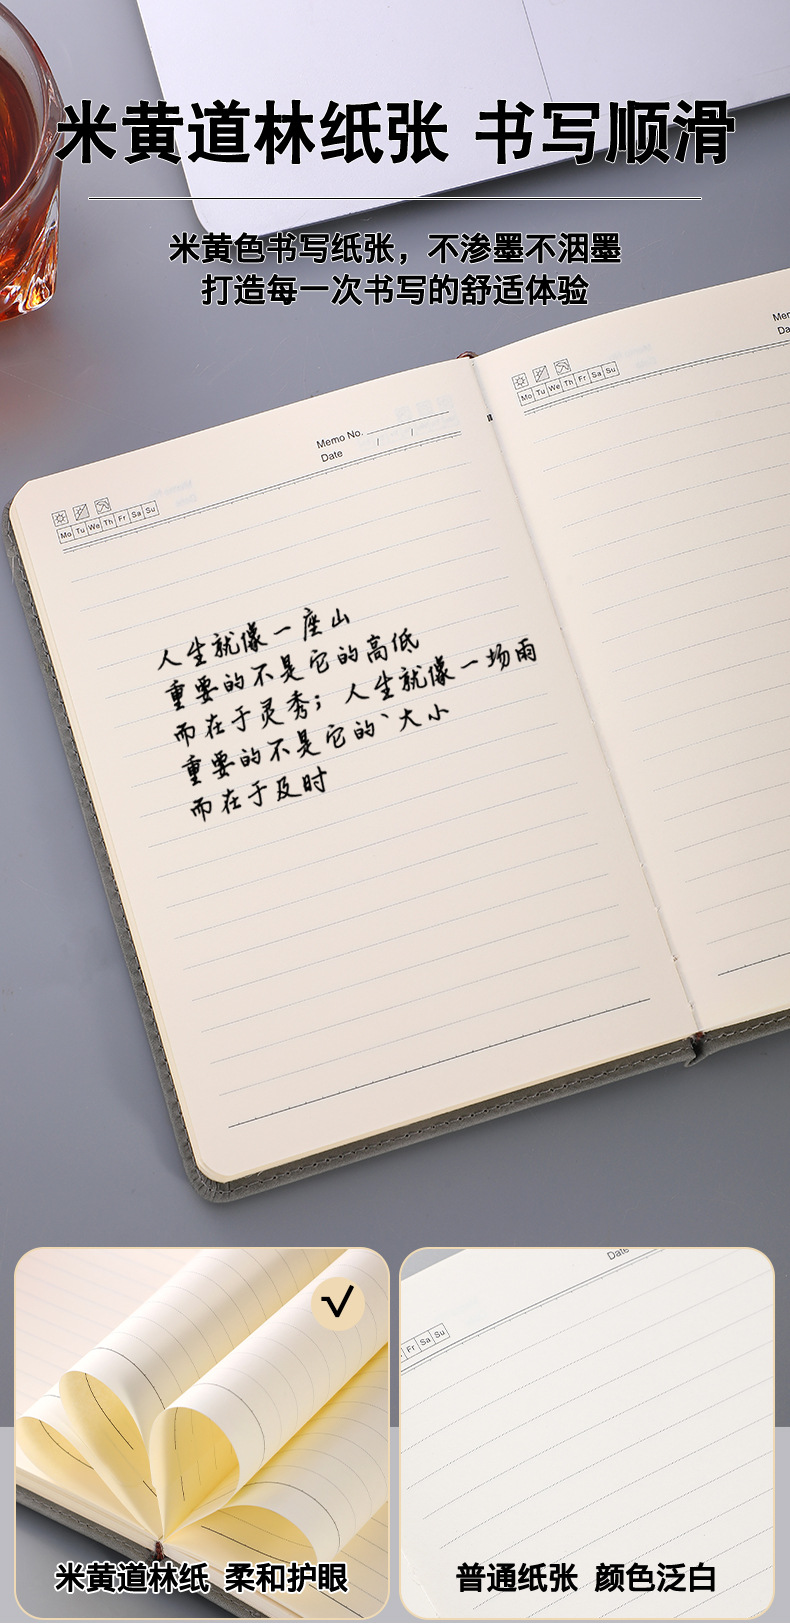 米黄道林纸张 书写顺滑
米黄色书写纸张，不渗墨不洇墨
打造每一次书写的舒适体验
Memo No.
Date / /
Mo Tu We Th Fr Sa Su
Mo Tu We Th Fr Sa Su
人生就像一座山
重要的不是它的高低
而在于灵秀；人生就像一场雨
重要的不是它的大小
而在于及时
Date
Fr Sa Su
米黄道林纸 柔和护眼
普通纸张 颜色泛白